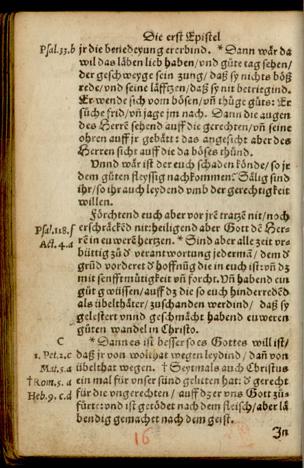 Die erst Epistel
Psal.33.b jr die benedeyung ererbind. * Dann wär da
wil das läben lieb haben/ vnd güte tag sehen/
der geschweyge sein zung/ daß sy nichts böß
rede/ vnd seine läfftzen/ daß sy nit betriegind.
Er wende sich vom bösen/ vñ thüge gůts: Er
sůche frid/ vñ jage jm nach. Dann die augen
des Herrē sehend auff die gerechten/ vñ seine
ohren auff jr gebätt: das angesicht aber des
Herren sicht auff die da böses thůnd.
Vnnd wär ist der euch schaden könde/ so jr
dem gůten fleyssig nachkommen? Sälig sind
ihr/ so ihr auch leydend vmb der gerechtigkeit
willen.
Förchtend euch aber vor jrē tratzē nit/ noch
Psal.118.f erschräckēd nit: heiligend aber Gott dē Her-
Act.4.a rē in euwerē hertzen. * Sind aber alle zeit vr-
büttig zů ď verantwortung jedermā/ dem ď
grūd vorderet ď hoffnūg die in euch ist: vñ dz
mit senfftmütigkeit vñ forcht. Vñ habend ein
gůt gwüssen/ auff dz die so euch hinderredēd
als übelthäter/ zůschanden werdind/ daß sy
gelestert vnnd geschmächt habend euweren
gůten wandel in Christo.
C * Dann es ist besser so es Gottes will ist/
1. Pet.2.c daß jr von wolthat wegen leydind/ dañ von
Mat.5.a übelthat wegen. † Seytmals auch Christus
† Rom.5.a ein mal für vnser sünd gelitten hat: ď gerecht
Heb.9.c.d für die vngerechten/ auff dz er vns Gott zů-
fürte: vnd ist getödet nach dem fleisch/ aber lä-
bendig gemachet nach dem geist.
16
In